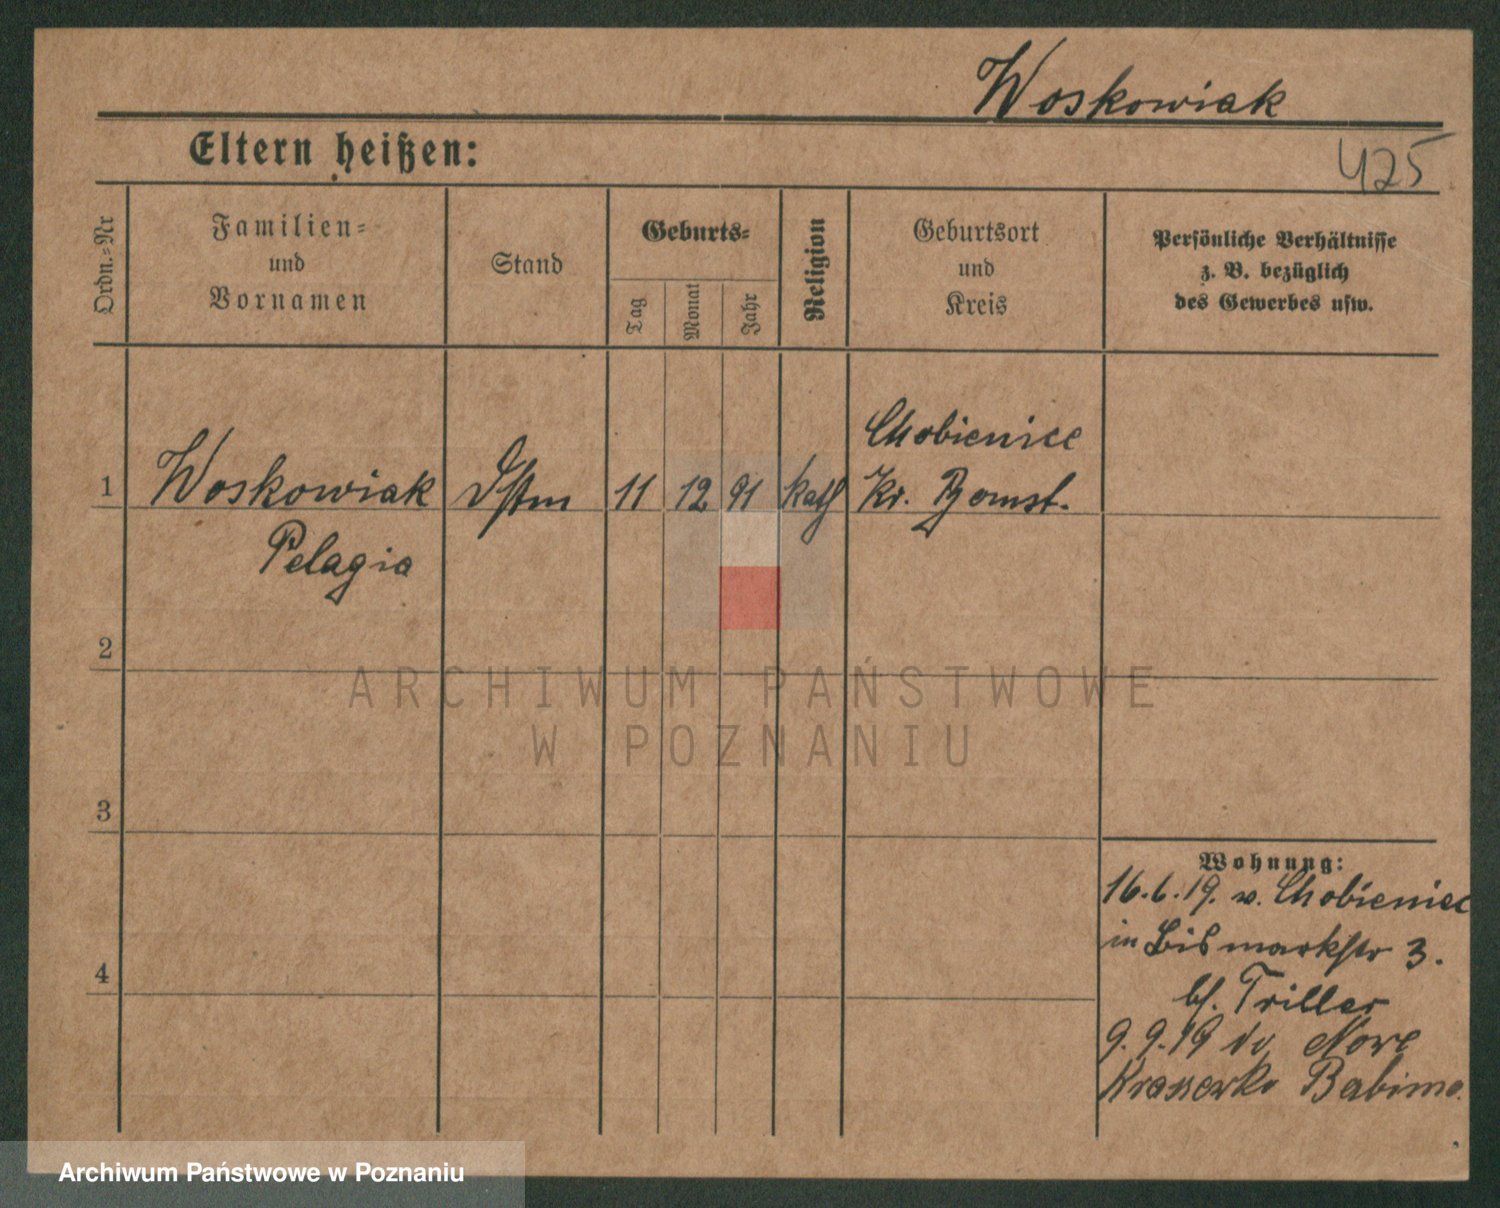 Woskowiak
Eltern heißen:
425
Ordn.=Nr
Familien=
und
Vornamen
Stand
Geburts=
Tag
Monat
Jahr
Religion
Geburtsort
und
Kreis
Persönliche Verhältnisse
z. B. bezüglich
des Gewerbes usw.
Chobienice
1 Woskowiak 11 12 91 kath Kr. Bomst.
Pelagia
2
3
4
Wohnung:
16.6.19. v. Chobienice
in Bismarkstr 3.
bf. Triller
9.9.19 do Nowe
Babimo.
ARCHIWUM PAŃSTWOWE
W POZNANIU
Archiwum Państwowe w Poznaniu